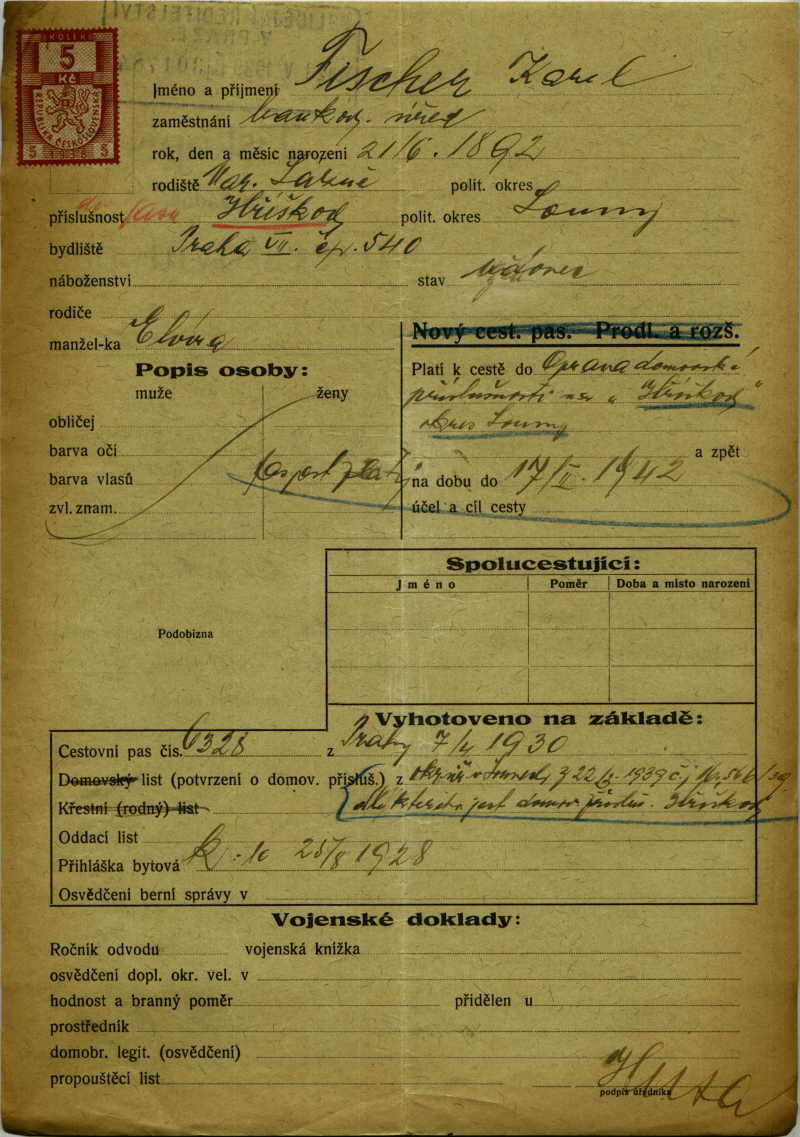 KOLEK
5
Kč
REPUBLIKA ČESKOSLOVENSKÁ
Jméno a přijmení Fischer Karel
zaměstnání bankov. úřed
rok, den a měsíc narození 21/6. 1892
rodiště polit. okres
příslušnost Hříškov polit. okres Louny
bydliště Praha VII. čp. 540
náboženství stav vdovec
rodiče
manžel-ka Elvíra
Nový cest. pas. Prodl. a rozš.
Popis osoby:
muže ženy
obličej
barva očí
barva vlasů
zvl. znam.
Platí k cestě do Oprava domovské
příslušnosti na „Hříškov"
okres Louny
a zpět
na dobu do 17/II. 1942
účel a cíl cesty
Spolucestující:
Jméno Poměr Doba a místo narození
Podobizna
Vyhotoveno na základě:
Cestovní pas čís. 6328 z Prahy 1930
Domovský list (potvrzení o domov. přísluš.) z okr. úř. v 22 1939 čj
Křestní (rodný) list dle kterého jest domov. příslu. Hříškov
Oddací list
Přihláška bytová 25/8 1928
Osvědčení berní správy v
Vojenské doklady:
Ročník odvodu vojenská knížka
osvědčení dopl. okr. vel. v
hodnost a branný poměr přidělen u
prostředník
domobr. legit. (osvědčení)
propouštěcí list
podpis úředníka